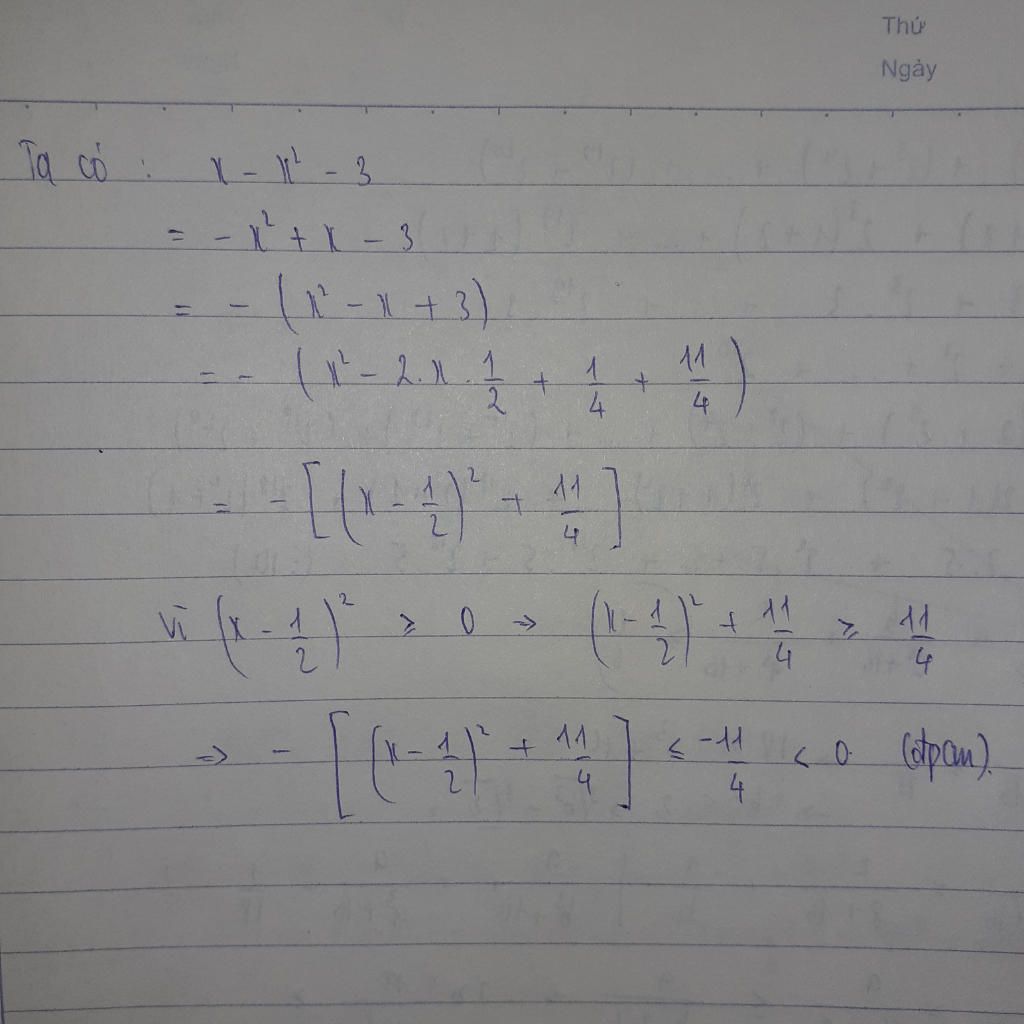 Thứ
Ngày
Ta có : x - x² - 3
= - x² + x - 3
= - (x² - x + 3)
= - (x² - 2.x.1/2 + 1/4 + 11/4)
= - [(x - 1/2)² + 11/4]
Vì (x - 1/2)² ≥ 0 => (x - 1/2)² + 11/4 ≥ 11/4
=> - [(x - 1/2)² + 11/4] ≤ -11/4 < 0 (đpcm).